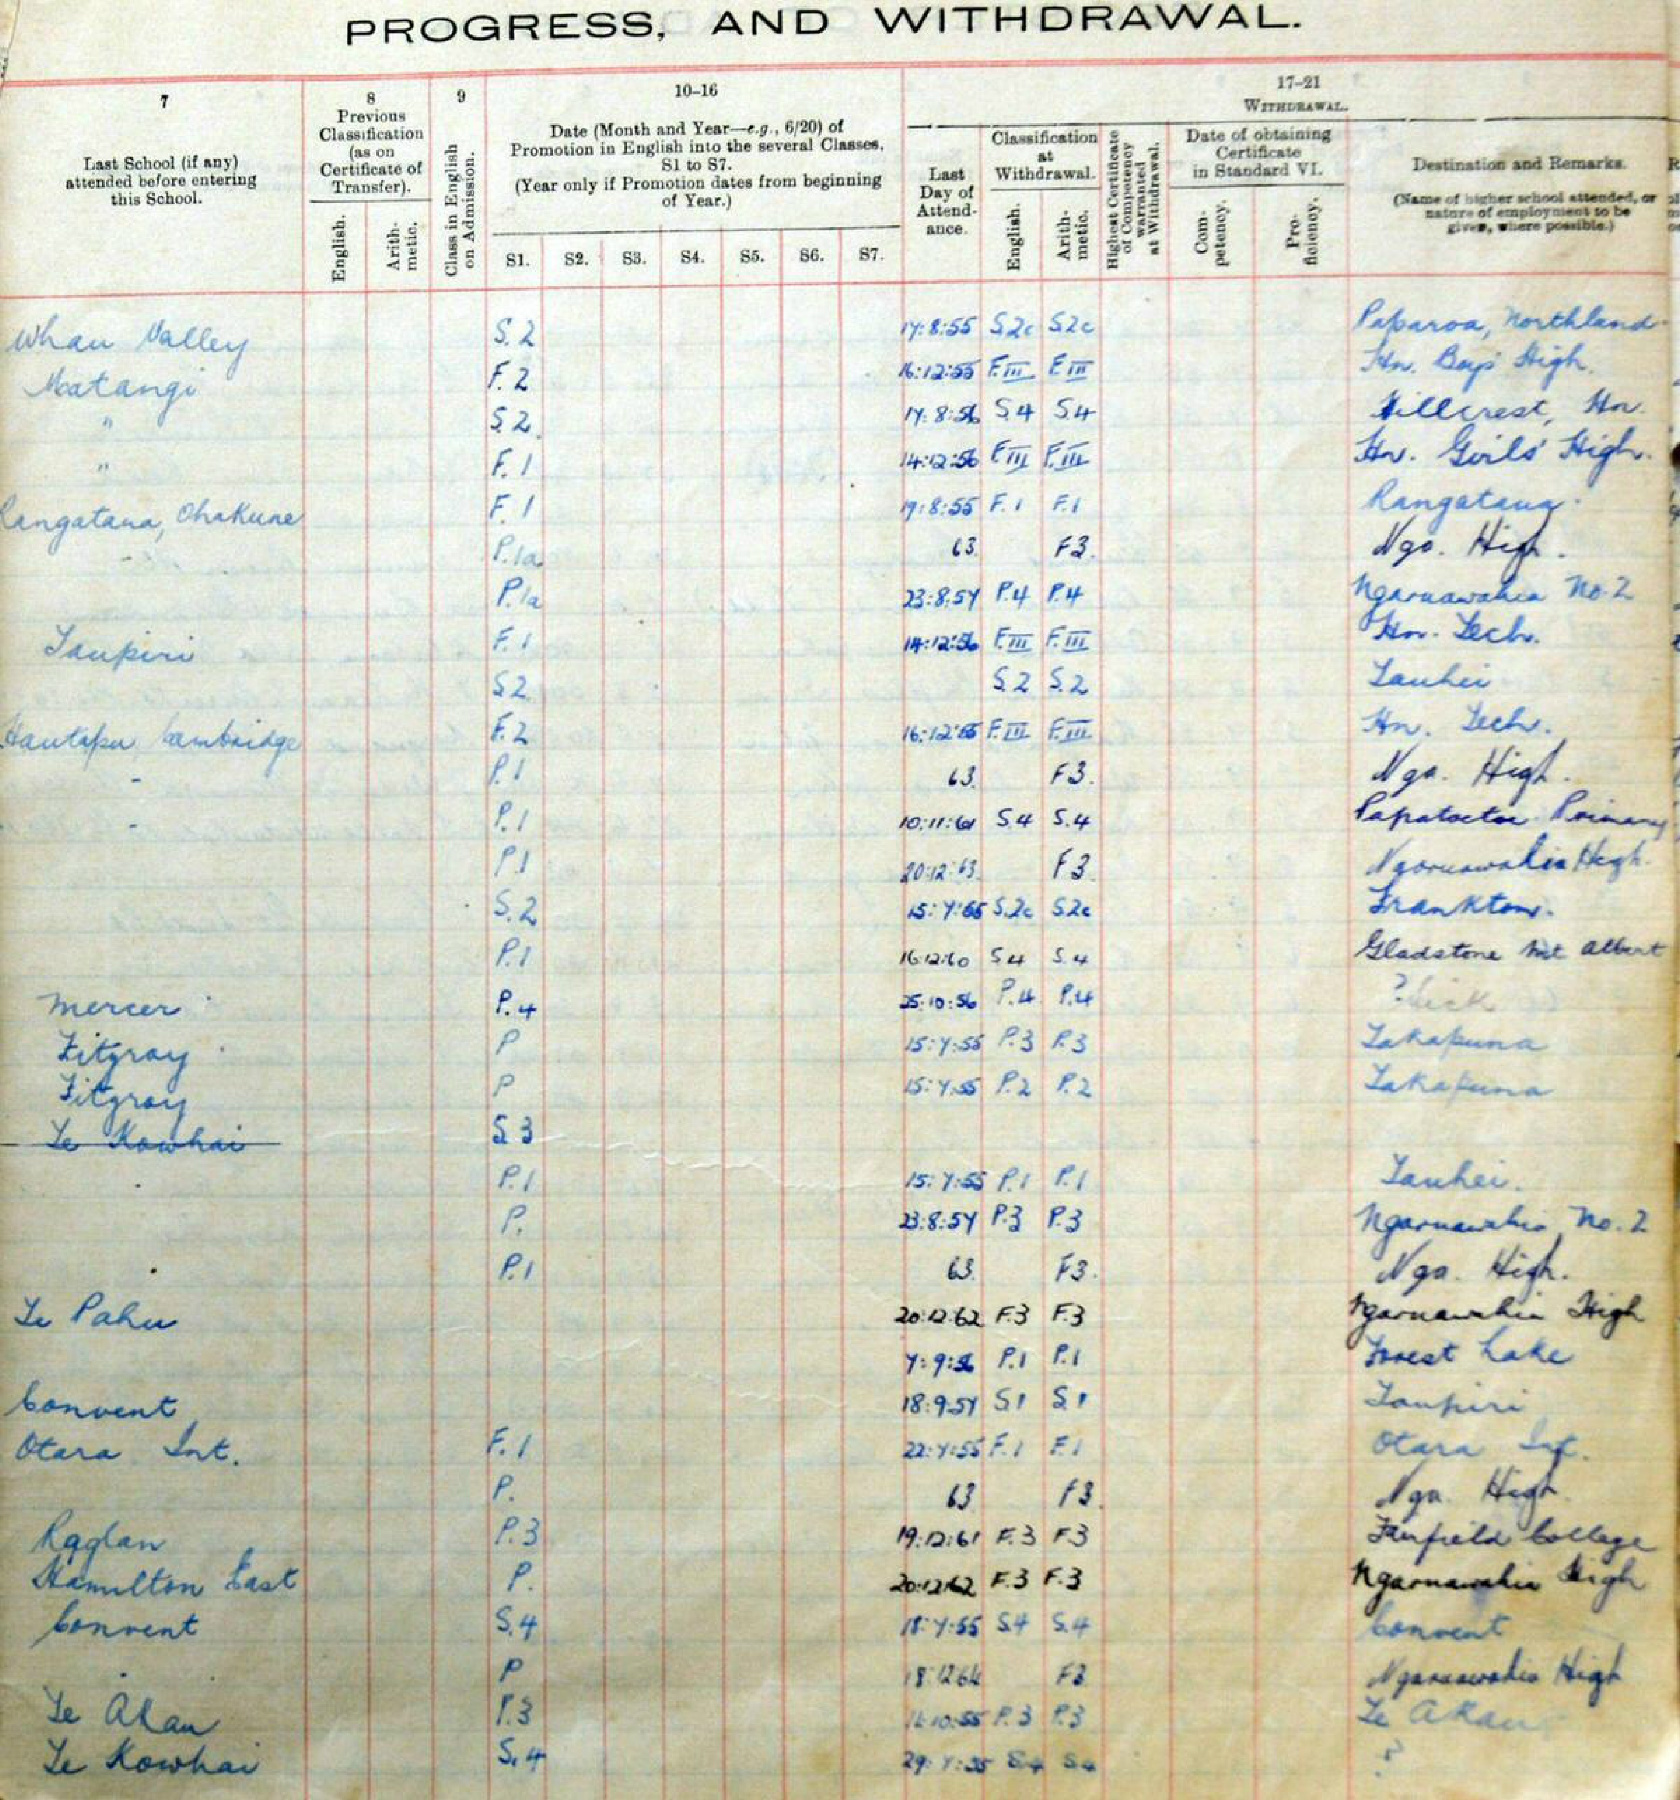 PROGRESS, AND WITHDRAWAL.
7 Last School (if any) attended before entering this School.
8 Previous Classification (as on Certificate of Transfer). English. Arithmetic.
9 Class in English on Admission.
10-16 Date (Month and Year—e.g., 6/20) of Promotion in English into the several Classes, S1 to S7. (Year only if Promotion dates from beginning of Year.)
S1. S2. S3. S4. S5. S6. S7.
17-21 WITHDRAWAL.
Last Day of Attendance.
Classification at Withdrawal. English. Arithmetic.
Highest Certificate of Competency warranted at Withdrawal.
Date of obtaining Certificate in Standard VI. Competency. Proficiency.
Destination and Remarks. (Name of higher school attended, or nature of employment to be given, where possible.)
Whau Valley S.2 17:8:55 S2c S2c Paparoa, Northland
Matangi F.2 16:12:55 F.III F.III Hn. Boys' High.
" S.2. 17:8:56 S4 S.4 Hillcrest, Hn.
" F.1 14:12:56 F.III F.III Hn. Girls' High.
Rangataua, Ohakune F.1 19:8:55 F.1 F.1 Rangataua.
P.1a 63. F3. Nga. High.
P.1a 23:8:57 P.4 P.4 Ngaruawahia No.2
Taupiri F.1 14:12:56 F.III F.III Hn. Tech.
S2 S.2 S.2 Tauhei
Hautapu, Cambridge F.2 16:12:55 F.III F.III Hn. Tech.
P.1 63. F3. Nga. High.
P.1 10:11:61 S.4 S.4 Papatoetoe Primary
P.1 20:12:63. F3. Ngaruawahia High.
S.2 15:7:55 S.2c S2c Frankton.
P.1 16:12:60 S4 S.4 Gladstone Mt Albert
Mercer P.4 25:10:56 P.4 P.4
Fitzroy P 15:7:55 P.3 P.3 Takapuna
Fitzroy P 15:7:55 P.2 P.2 Takapuna
Te Kowhai S.3
P.1 15:7:55 P.1 P.1 Tauhei.
P. 23:8:57 P.3 P.3 Ngaruawahia No.2
P.1 63. F3. Nga. High.
Te Pahu 20:12:62 F.3 F.3 Ngaruawahia High
7:9:56 P.1 P.1 Forest Lake
Convent 18:9:57 S1 S1 Taupiri
Otara Int. F.1 22:7:55 F.1 F.1 Otara Int.
P. 63 F3. Nga. High
Raglan P.3 19:12:61 F.3 F.3 Fairfield College
Hamilton East P. 20:12:62 F.3 F.3 Ngaruawahia High
Convent S.4 18:7:55 S4 S.4 Convent
P 18:12:64 F3 Ngaruawahia High
Te Akau P.3 P.3 P.3 Te Akau
Te Kowhai S.4 29:7:55 S4 S4 ?